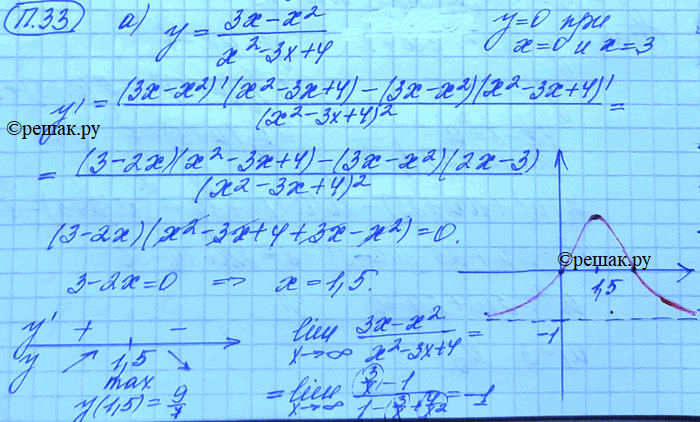 П.33 а) y = (3x-x²)/(x²-3x+4) y=0 при
x=0 и x=3
y' = ((3x-x²)'(x²-3x+4)-(3x-x²)(x²-3x+4)')/(x²-3x+4)² =
©решак.ру
= ((3-2x)(x²-3x+4)-(3x-x²)(2x-3))/(x²-3x+4)²
(3-2x)(x²-3x+4+3x-x²)=0.
©решак.ру
3-2x=0 => x=1,5.
1,5
y' + -
y 1,5
max
y(1,5)=9/7
lim x→∞ (3x-x²)/(x²-3x+4) =
-1
= lim x→∞ (3/x-1)/(1-3/x+4/x²) = -1